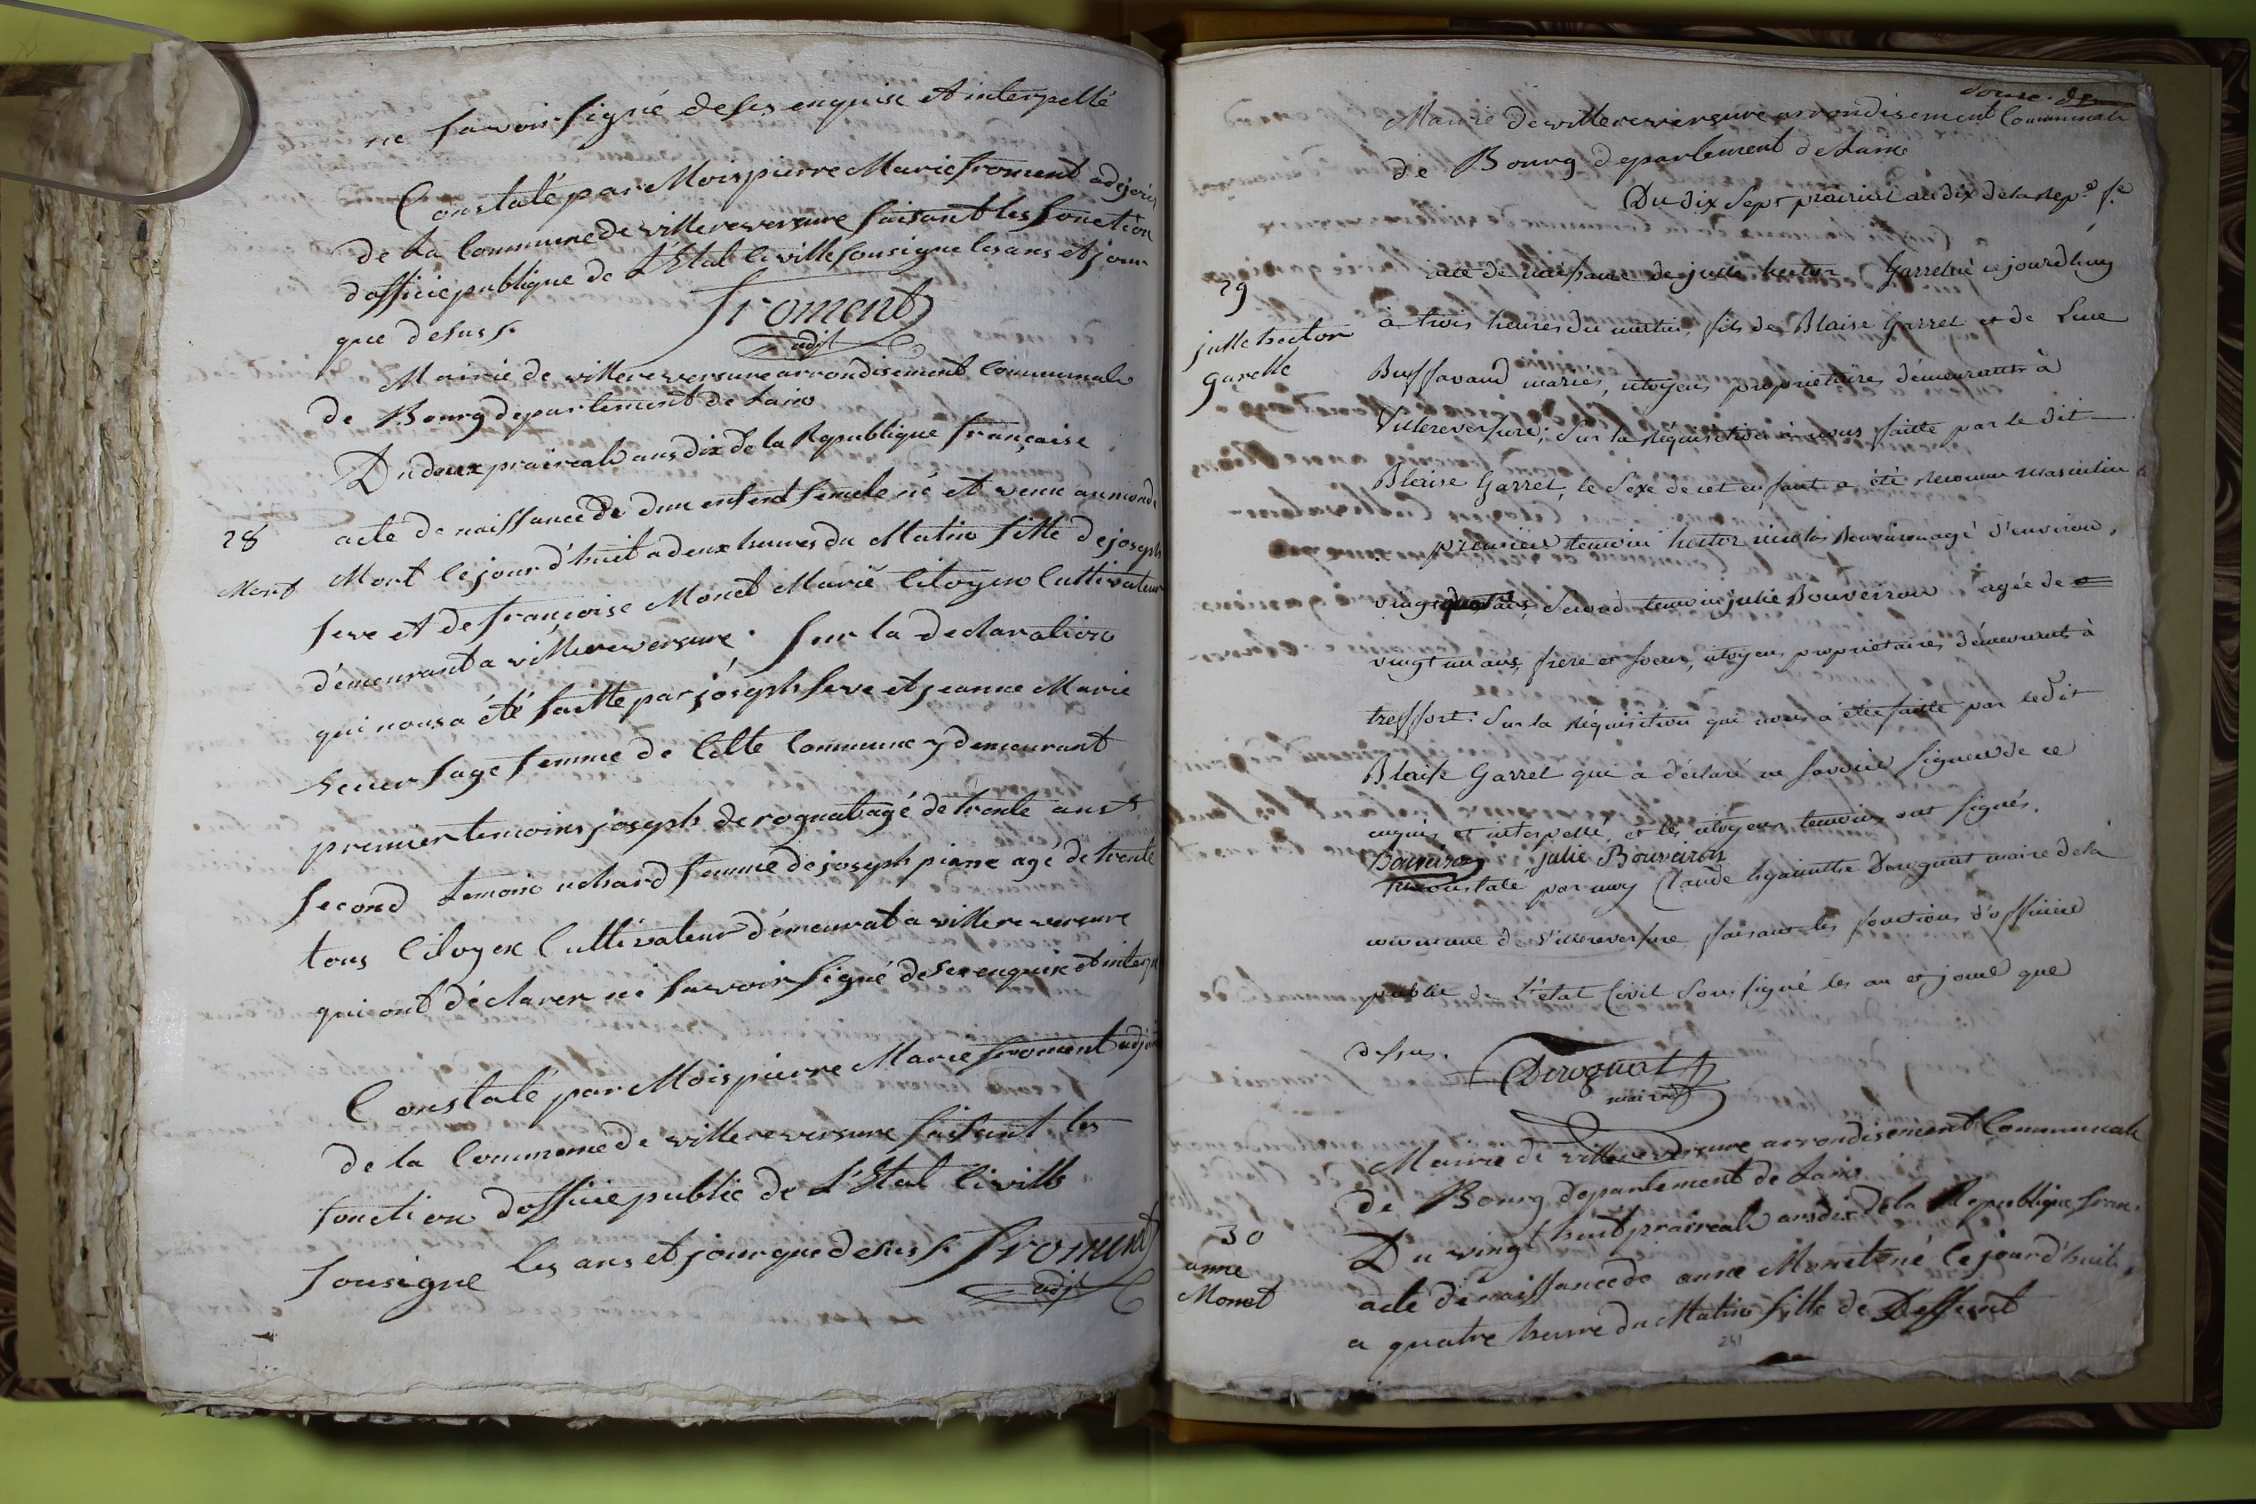 ne savoir signé de ses enquise et interpellé
Constaté par Mois pierre Marie froment adjoin
de La Commune de villereversure faisant les fonction
dofficie publique de L'Etat Civille sousigne les ans et jour
que desus
froment
adjt
Mairie de villereversure arrondisement Communale
de Bourg departement de Lain
Du deux praireal ans dix de la Republique française
28
acte de naissance de dun enfent femele né et venu au monde
Mort
Mort Cejourd'huit a deux heures du Matin fille de joseph
feve et de francoise Monet Marié Citoyen Cultivateur
démeurant a villereversure. Sur la declaration
qui nous a été faitte par joseph feve et jeanne Marie
femme de Cette Commune y demeurant
premier temoins joseph derognat agé de trente ans
second temoin richard femme de joseph piane agé de trente
tous Citoyen Cultivateur démeurat a villereversure
qui ont déclarer ne savoir signé de ses enquise et interp
Constaté par Mois pierre Marie froment adjoi
de la Commune de villereversure faisant les
fonction dofficie publié de L'Etat Civille
sousigne les ans et jour que desus froment
adjt
douse
Mairie de villereversure arrondisement Communale
de Bourg departement de Lain
Du dix sept prairial an dix de la Rep.e f.e
29
acte de naissance de julle hector Garret né cejourdhuy
julle hector
Garelle
à trois heures du matin, fils de Blaise Garret et de Line
Buffavand mariés, citoyens proprietaires démeurants à
Villereversure; Sur la réquisition à nous faitte par le dit
Blaise Garret, le Sexe de cet enfant a été reconnu masculin
premier temoin hector nicolas Bouveiron agé d'environ,
vingt quatre ans, Second temoin julie Bouveiron agée de
vingt un ans, frère et soeur, citoyens proprietaires démeurant à
treffort: Sur la réquisition qui nous à été faitte par ledit
Blaise Garret qui à déclaré ne savoir signer de ce
enquis et interpellé, et les citoyens temoins ont signés.
Bouveiron julie Bouveiron
Constate par moy Claude hyacinthe Derognat maire de la
commune de Villereversure faisant les fonctions d'officier
public de l'état Civil Soussigné les an et jour que
dessus.
Derognat
maire
Mairie de villereversure arrondisement Communale
de Bourg departement de Lain
30
Du vingt huit praireal ans dix de la Republique fran
anne
Monet
acte de naissance de anne Monet né Cejourd'huit
a quatre heure du Matin fille de Deffeint
241